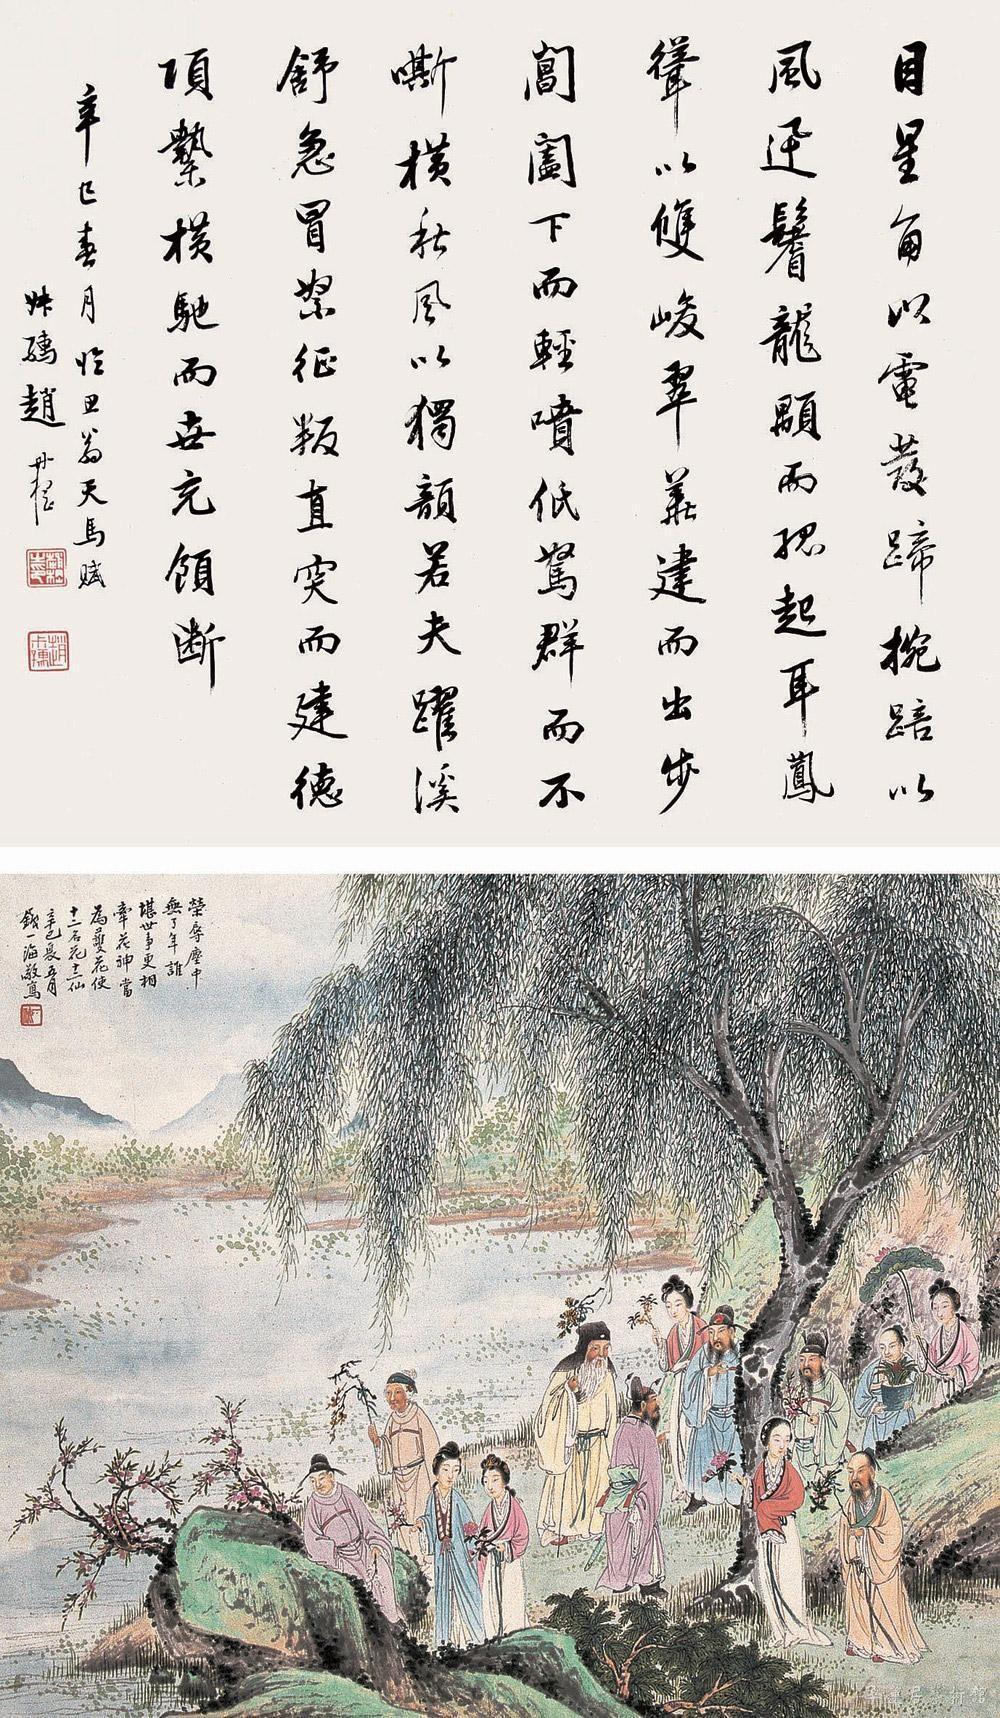 目星角以電發蹄椀踣以
風迅鬐龍顒而孤起耳鳳
聳以雙峻翠華建而出步
閶闔下而輕噴低駑群而不
嘶橫秋風以獨韻若夫躍溪
舒急冒絮征叛直突而建德
項縶橫馳而世充領斷
辛巳春月臨丑翁天馬賦
叔孺趙时棡
榮辱塵中
無了年誰
堪世事更相
牽花神當
為愛花使
十二名花十二仙
辛巳夏五月
錢一海敬寫